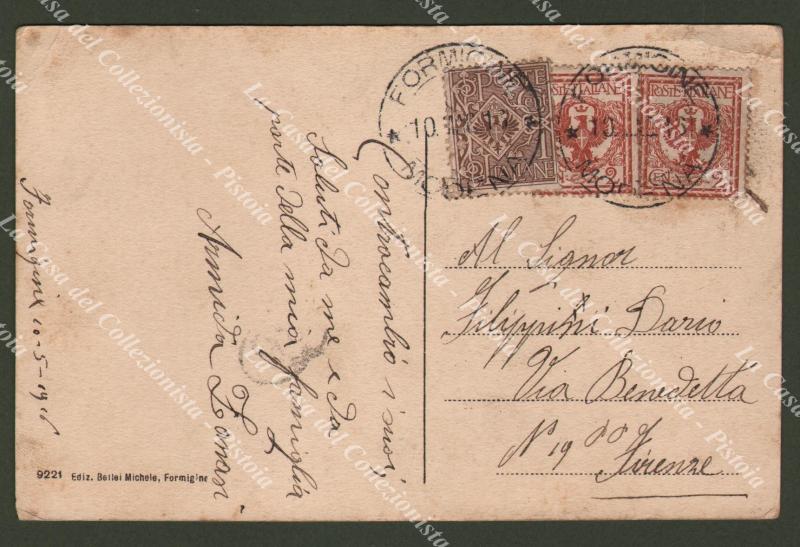 Contraccambio i suoi
Saluti da me e da
parte della mia famiglia
Armida
Formigine 10-5-1916
FORMIGINE
MODENA
FORMIGINE
MODENA
POSTE ITALIANE
POSTE ITALIANE
Al Signor
Filippini Dario
Via Benedetta
N° 19 pp
Firenze
9221 Ediz. Bellei Michele, Formigine
La Casa del Collezionista - Pistoia